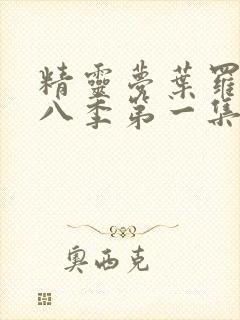 精靈夢葉羅
八季第一集
奧西克